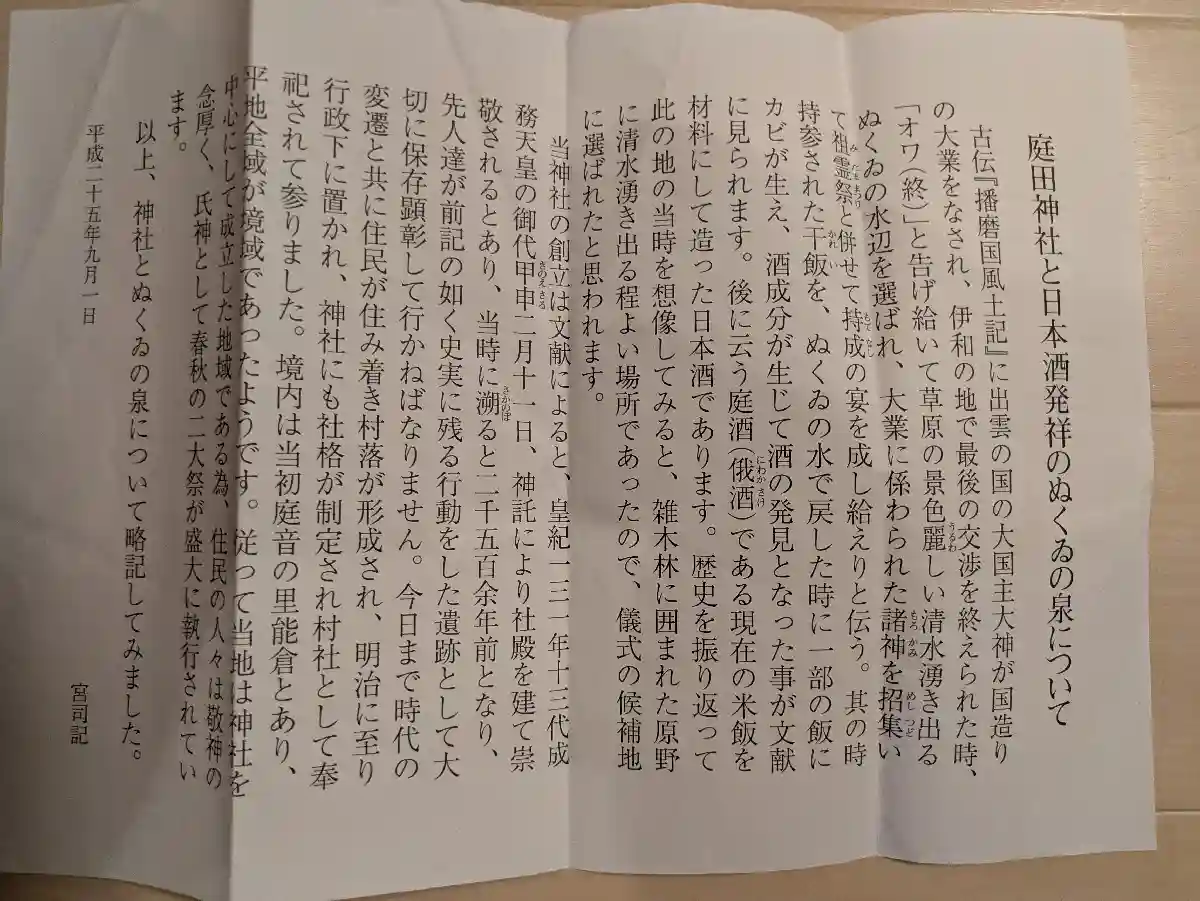 庭田神社と日本酒発祥のぬくゐの泉について
古伝『播磨国風土記』に出雲の国の大国主大神が国造り
の大業をなされ、伊和の地で最後の交渉を終えられた時、
「オワ（終）」と告げ給いて草原の景色麗しい清水湧き出る
ぬくゐの水辺を選ばれ、大業に係わられた諸神を招集い
て祖霊祭と併せて持成の宴を成し給えりと伝う。其の時
持参された干飯を、ぬくゐの水で戻した時に一部の飯に
カビが生え、酒成分が生じて酒の発見となった事が文献
に見られます。後に云う庭酒（俄酒）である現在の米飯を
材料にして造った日本酒であります。歴史を振り返って
此の地の当時を想像してみると、雑木林に囲まれた原野
に清水湧き出る程よい場所であったので、儀式の候補地
に選ばれたと思われます。
当神社の創立は文献によると、皇紀一三一年十三代成
務天皇の御代甲申二月十一日、神託により社殿を建て崇
敬されるとあり、当時に溯ると二千五百余年前となり、
先人達が前記の如く史実に残る行動をした遺跡として大
切に保存顕彰して行かねばなりません。今日まで時代の
変遷と共に住民が住み着き村落が形成され、明治に至り
行政下に置かれ、神社にも社格が制定され村社として奉
祀されて参りました。境内は当初庭音の里能倉とあり、
平地全域が境域であったようです。従って当地は神社を
中心にして成立した地域である為、住民の人々は敬神の
念厚く、氏神として春秋の二大祭が盛大に執行されてい
ます。
以上、神社とぬくゐの泉について略記してみました。
平成二十五年九月一日
宮司記